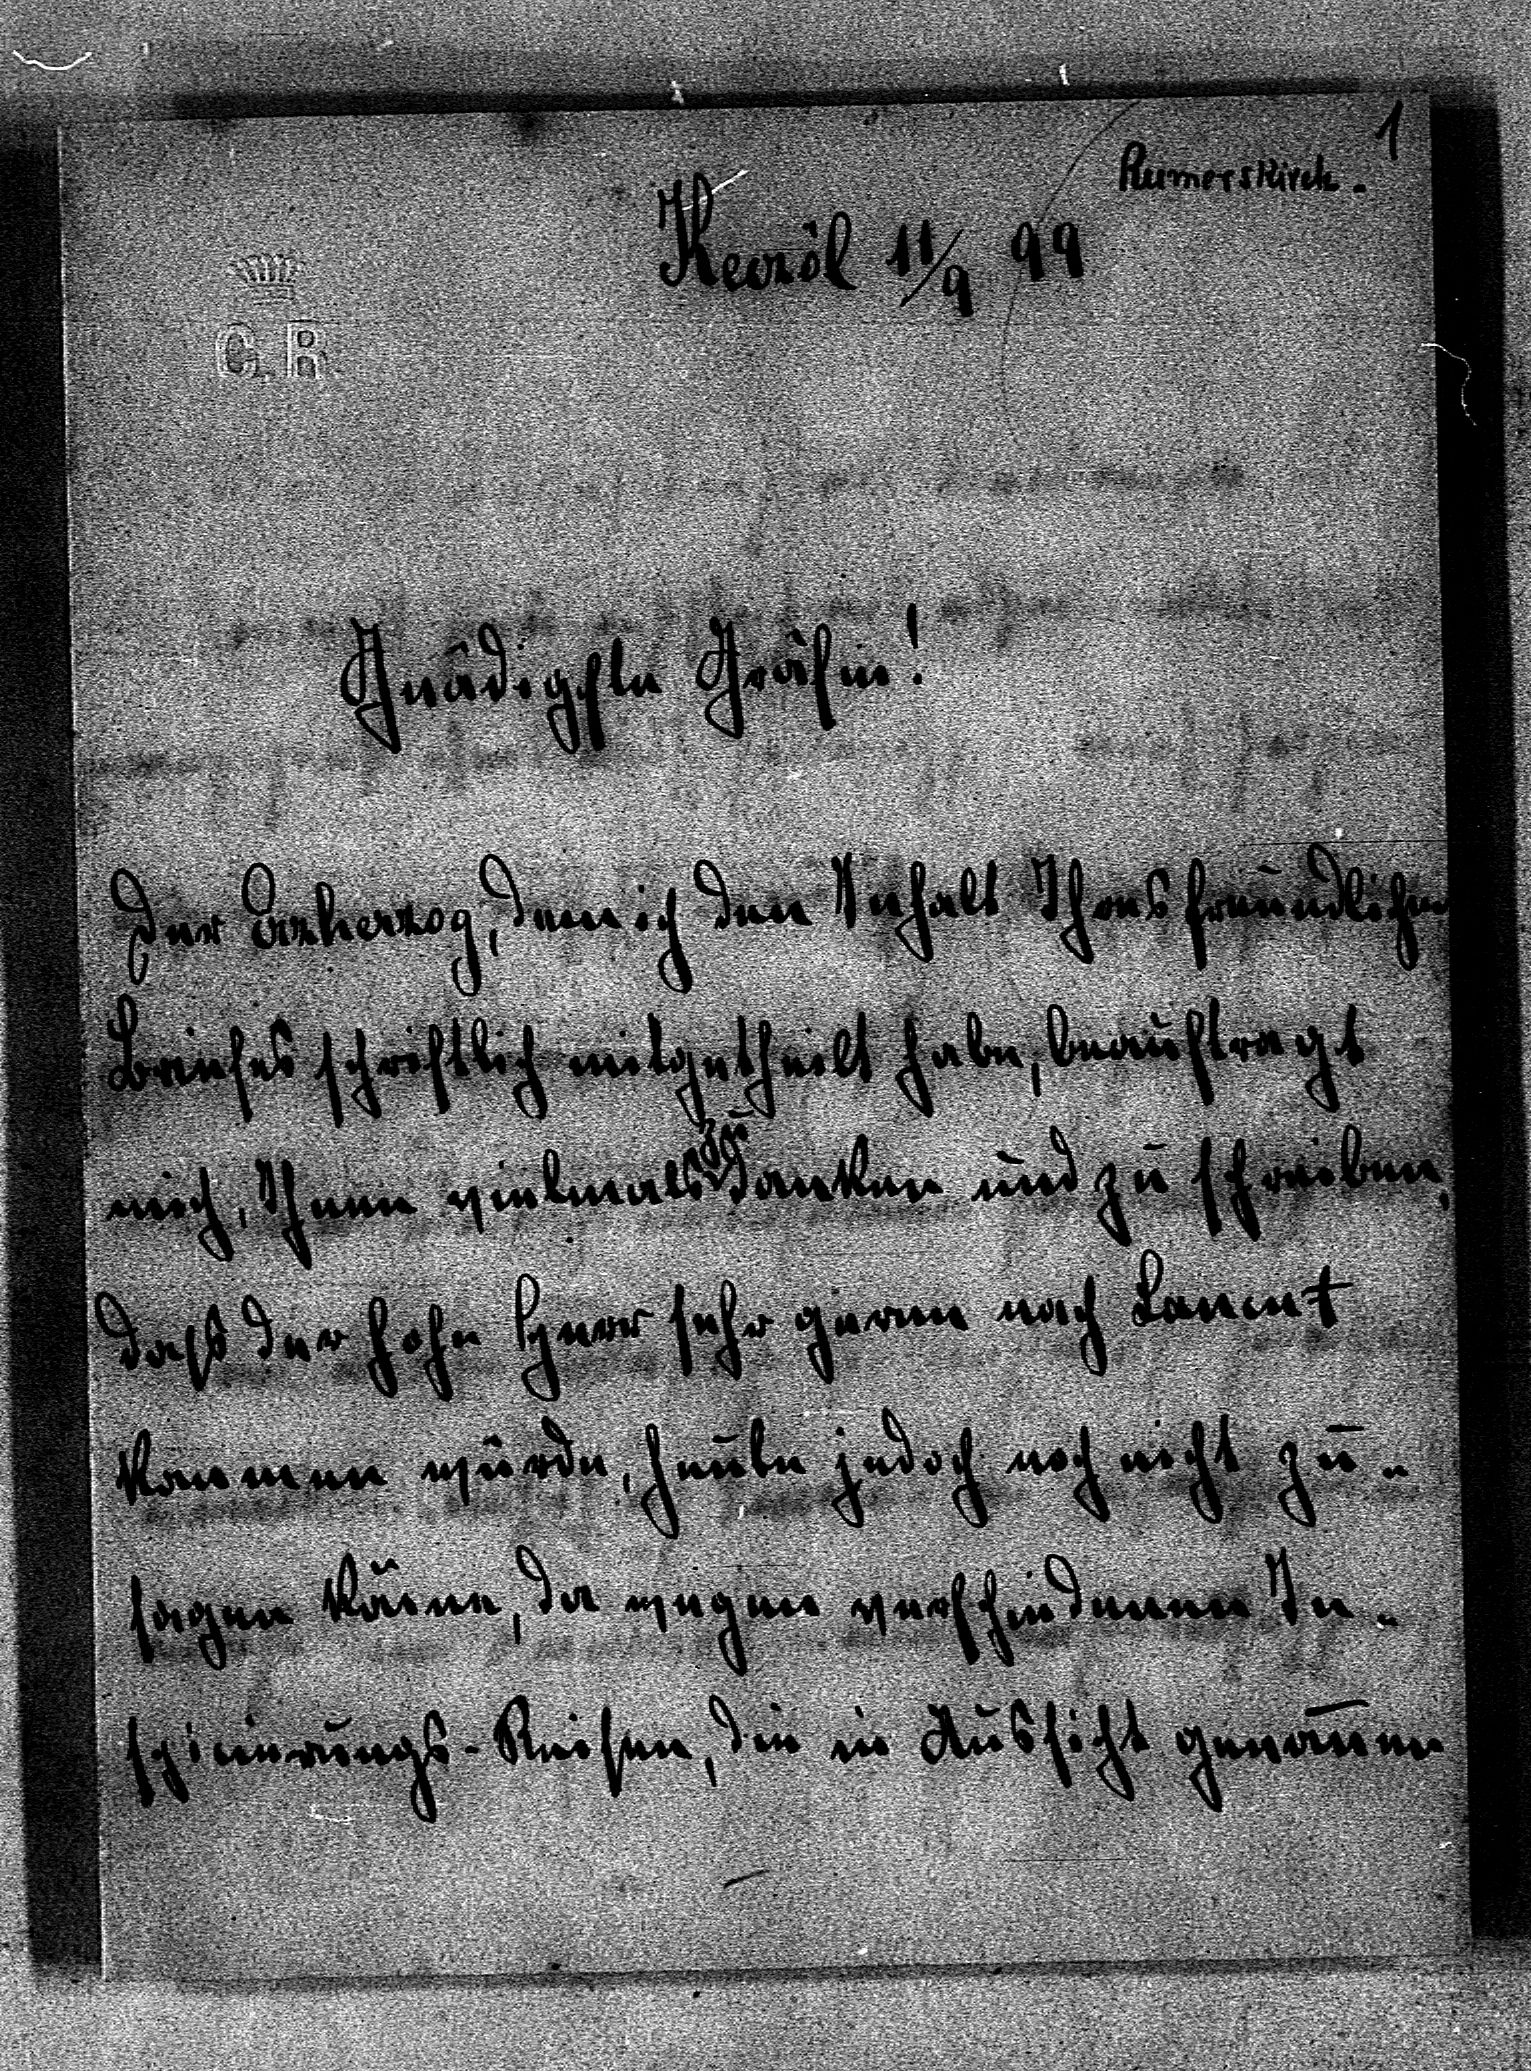 1
Rumerskirch.
Kewzöl 11/9 99
C. R.
Gnädigste Gräfin!
Der Erzherzog, dem ich den Inhalt Ihres freundlichen
Briefes schriftlich mitgetheilt habe, beauftragt
mich, Ihnen vielmals zu danken und zu schreiben,
daß der hohe Herr sehr gerne nach Lancut
kommen würde, heute jedoch noch nicht zu-
sagen könne, da wegen verschiedenen In-
spicirungs-Reisen, die in Aussicht genom̄en